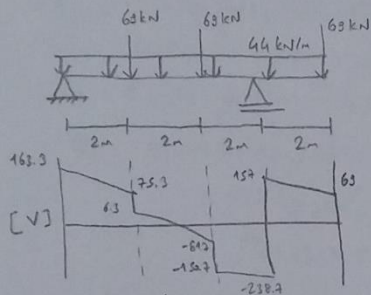 69kN 69kN 69kN
44kN/m
2m 2m 2m 2m
163.3 75.3 157 69
6.3
[V]
-81.7
-150.7
-238.7